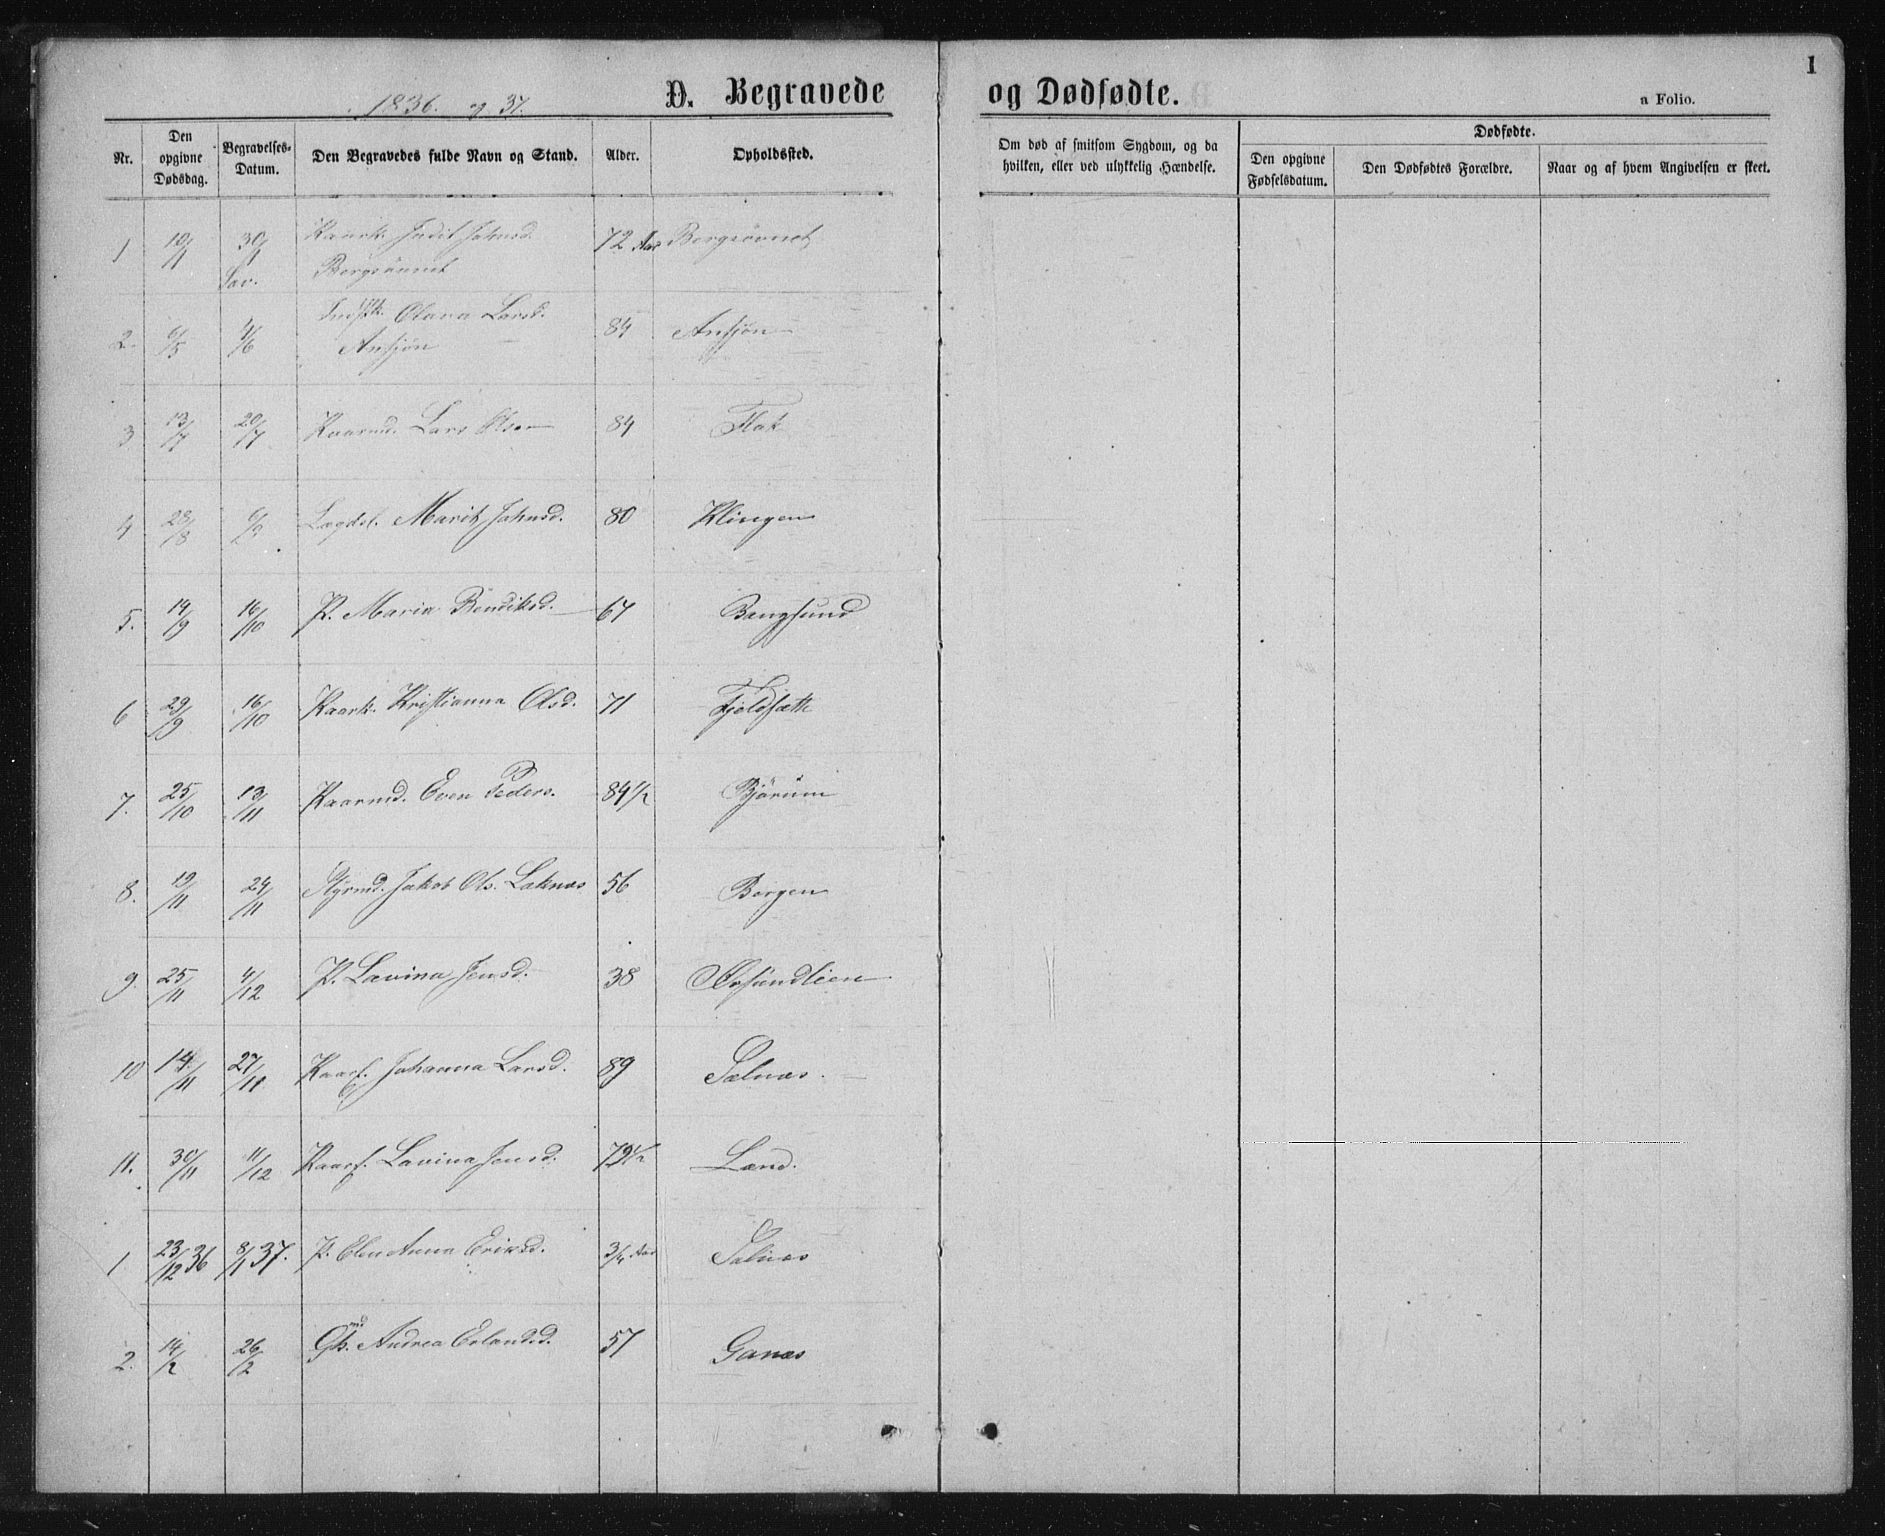 1836. og 37.
D. Begravede og Dødfødte.
1
a Folio.
Nr.
Den opgivne Dødsdag.
Begravelses-Datum.
Den Begravedes fulde Navn og Stand.
Alder.
Opholdssted.
Om død af smitsom Sygdom, og da hvilken, eller ved ulykkelig Hændelse.
Dødfødte.
Den opgivne Fødselsdatum.
Den Dødfødtes Forældre.
Naar og af hvem Angivelsen er skeet.
1 10/1 30/1 Kaark. Judit Johnsd. 72 Aar Borgsövnet
Sav. Borgsövnet
2. 6/5 4/6 Olava Larsd. 84 Ansjön
Ansjön
3 13/7 20/7 Kaarmd. Lars Olsen 84 Flak
4 28/8 6/9 Lægdsl. Marit Johnsd. 80 Klingen
5. 19/9 16/10 P. Maria Bendiksd. 67 Bangsund
6 29/9 16/10 Kaark. Kristianna Olsd. 71 Fjeldsætt
7. 25/10 13/11 Kaarmd. Even Peders. 84 1/2 Bjørum
8. 19/11 24/11 Styrmd. Jakob Ols. Laknæs 56 Borgen
9 25/11 4/12 P. Lavina Jensd. 38 Aasundlien
10 14/11 27/11 Kaarf. Johanna Larsd. 89 Salnæs.
11. 30/11 11/12 Kaarf. Lavina Jensd. 79 1/2 Land.
1 23/12 36 8/1 37. P. Elen Anna Eriksd. 3/4 Aar Salnæs
2. 14/2 26/2 Andrea Erlandsd. 57 Ganæs